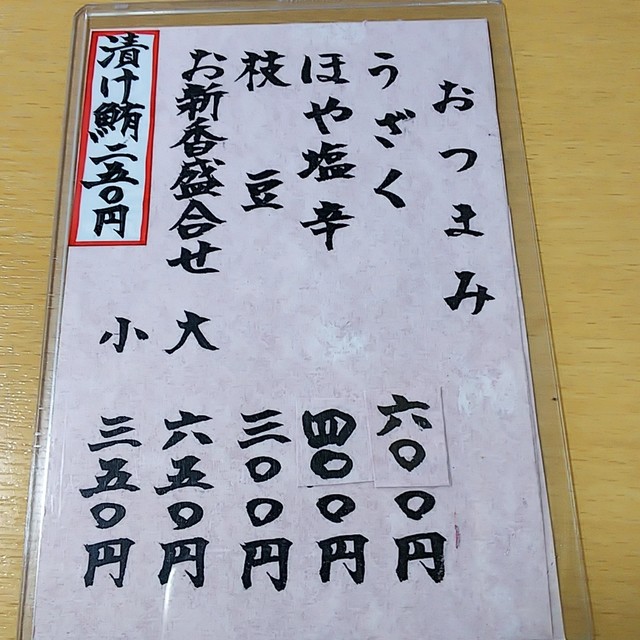 おつまみ
うざく 六〇〇円
ほや塩辛 四〇〇円
枝豆 三〇〇円
お新香盛合せ 大 六五〇円
小 三五〇円
漬け鮪二五〇円